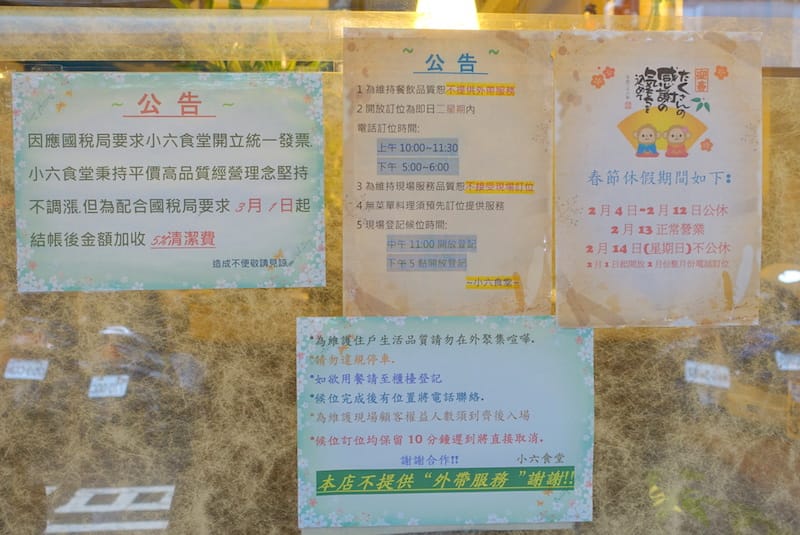 ~ 公告 ~
因應國稅局要求小六食堂開立統一發票.
小六食堂秉持平價高品質經營理念堅持
不調漲.但為配合國稅局要求 3月1日起
結帳後金額加收 5%清潔費
造成不便敬請見諒
~ 公告 ~
1 為維持餐飲品質恕不提供外帶服務
2 開放訂位為即日二星期內
電話訂位時間:
上午 10:00~11:30
下午 5:00~6:00
3 為維持現場服務品質恕不接受現場訂位
4 無菜單料理須預先訂位提供服務
5 現場登記候位時間:
中午 11:00 開放登記
下午 5 點開放登記
~小六食堂~
迎春
たくさんの
感謝の
気持ちを
込めて
春節休假期間如下:
2月4日-2月12日公休
2月13 正常營業
2月14日(星期日)不公休
2月1日起開放2月份整月份電話訂位
*為維護住戶生活品質請勿在外聚集喧嘩.
*請勿違規停車.
*如欲用餐請至櫃檯登記
*候位完成後有位置將電話聯絡.
*為維護現場顧客權益人數須到齊後入場
*候位訂位均保留 10 分鐘遲到將直接取消.
謝謝合作!! 小六食堂
本店不提供“外帶服務”謝謝!!